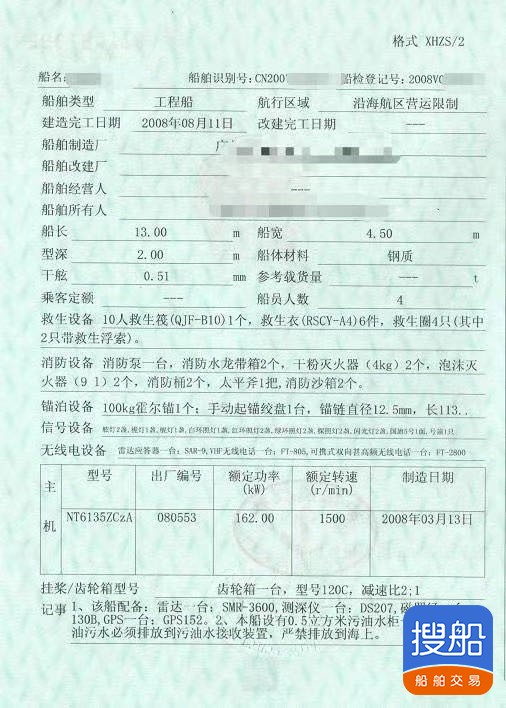 格式 XHZS/2
船名: 船舶识别号: CN200 船检登记号: 2008V
船舶类型 工程船 航行区域 沿海航区营运限制
建造完工日期 2008年08月11日 改建完工日期 ---
船舶制造厂
船舶改建厂
船舶经营人 ---
船舶所有人
船长 13.00 m 船宽 4.50 m
型深 2.00 m 船体材料 钢质
干舷 0.51 mm 参考载货量 --- t
乘客定额 --- 船员人数 4
救生设备 10人救生筏(QJF-B10)1个, 救生衣(RSCY-A4)6件, 救生圈4只(其中
2只带救生浮索)。
消防设备 消防泵一台, 消防水龙带箱2个, 干粉灭火器 (4kg) 2个, 泡沫灭
火器 (9 l) 2个, 消防桶2个, 太平斧1把, 消防沙箱2个。
锚泊设备 100kg霍尔锚1个; 手动起锚绞盘1台, 锚链直径12.5mm, 长113..
信号设备
无线电设备 雷达应答器一台; SAR-9, VHF无线电话一台; FT-805, 可携式双向甚高频无线电话一台; FT-2800
主机 型号 出厂编号 额定功率 (kW) 额定转速 (r/min) 制造日期
NT6135ZCzA 080553 162.00 1500 2008年03月13日
挂桨/齿轮箱型号 齿轮箱一台, 型号120C, 减速比2;1
记事 1、该船配备: 雷达一台; SMR-3600, 测深仪一台; DS207,
130B, GPS一台; GPS152。2、本船设有0.5立方米污油水柜
油污水必须排放到污油水接收装置, 严禁排放到海上。
搜船
船舶交易